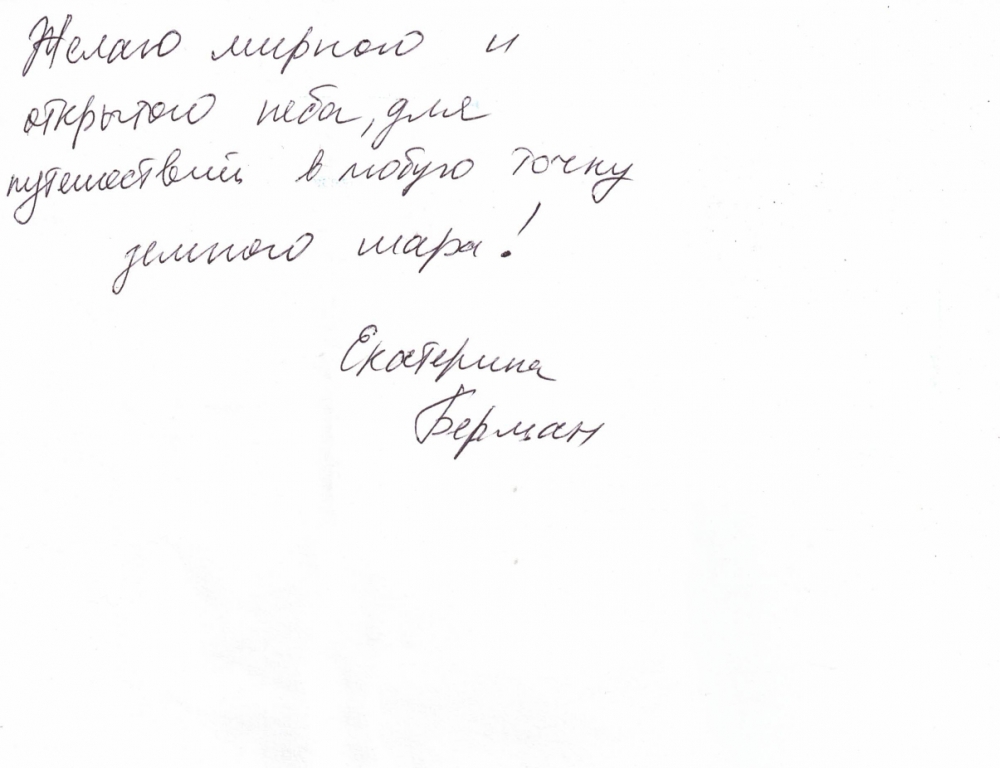 Желаю мирного и
открытого неба, для
путешествий в любую точку
земного шара!
Екатерина
Берман